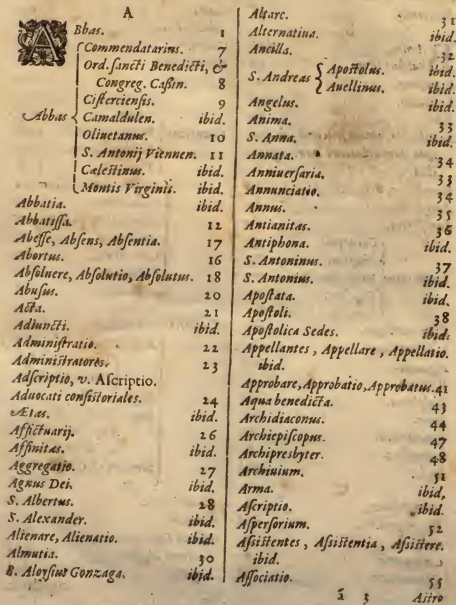 A
ABbas. 1
Commendatarius. 7
Ord. sancti Benedicti, &
Congreg. Cassin. 8
Cisterciensis. 9
Abbas Camaldulen. ibid.
Oliuetanus. 10
S. Antonij Viennen. 11
Cælestinus. ibid.
Montis Virginis. ibid.
Abbatia. ibid.
Abbatissa. 12
Abesse, Absens, Absentia. 17
Abortus. 16
Absoluere, Absolutio, Absolutus. 18
Abusus. 20
Acta. 21
Adiuncti. ibid.
Administratio. 22
Administratores. 23
Adscriptio, v. Ascriptio.
Aduocati consistoriales. 24
Ætas. ibid.
Affictuarij. 26
Affinitas. ibid.
Aggregatio. 27
Agnus Dei. ibid.
S. Albertus. 28
S. Alexander. ibid.
Alienare, Alienatio. ibid.
Almutia. 30
B. Aloysius Gonzaga. ibid.
Altare. 31
Alternatiua. ibid.
Ancilla. 32
S. Andreas Apostolus. ibid.
Auellinus. ibid.
Angelus. ibid.
Anima. 33
S. Anna. ibid.
Annata. 34
Anniuersaria. 33
Annunciatio. 34
Annus. 35
Antianitas. 36
Antiphona. ibid.
S. Antoninus. 37
S. Antonius. ibid.
Apostata. ibid.
Apostoli. 38
Apostolica Sedes. ibid.
Appellantes, Appellare, Appellatio.
ibid.
Approbare, Approbatio, Approbatus. 41
Aqua benedicta. 43
Archidiaconus. 44
Archiepiscopus. 47
Archipresbyter. 48
Archiuium. 51
Arma. ibid.
Ascriptio. ibid.
Aspersorium. 52
Assistentes, Assistentia, Assistere.
ibid.
Associatio. 55
ā 3 Astro